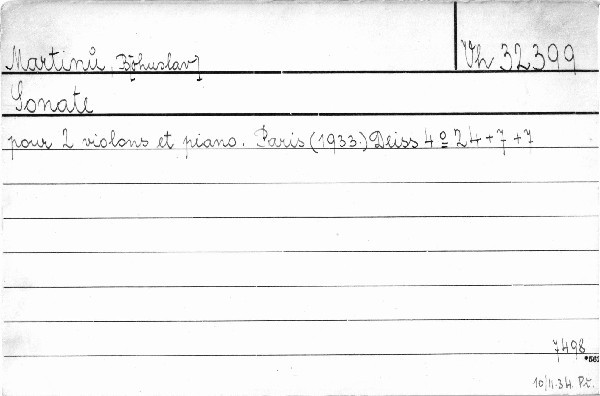 Martinů, B[ohuslav]
Vh 32399
Sonate
pour 2 violons et piano. Paris (1933.) Deiss 4º 24 + 7 + 7
7498
10/II.34. Př.